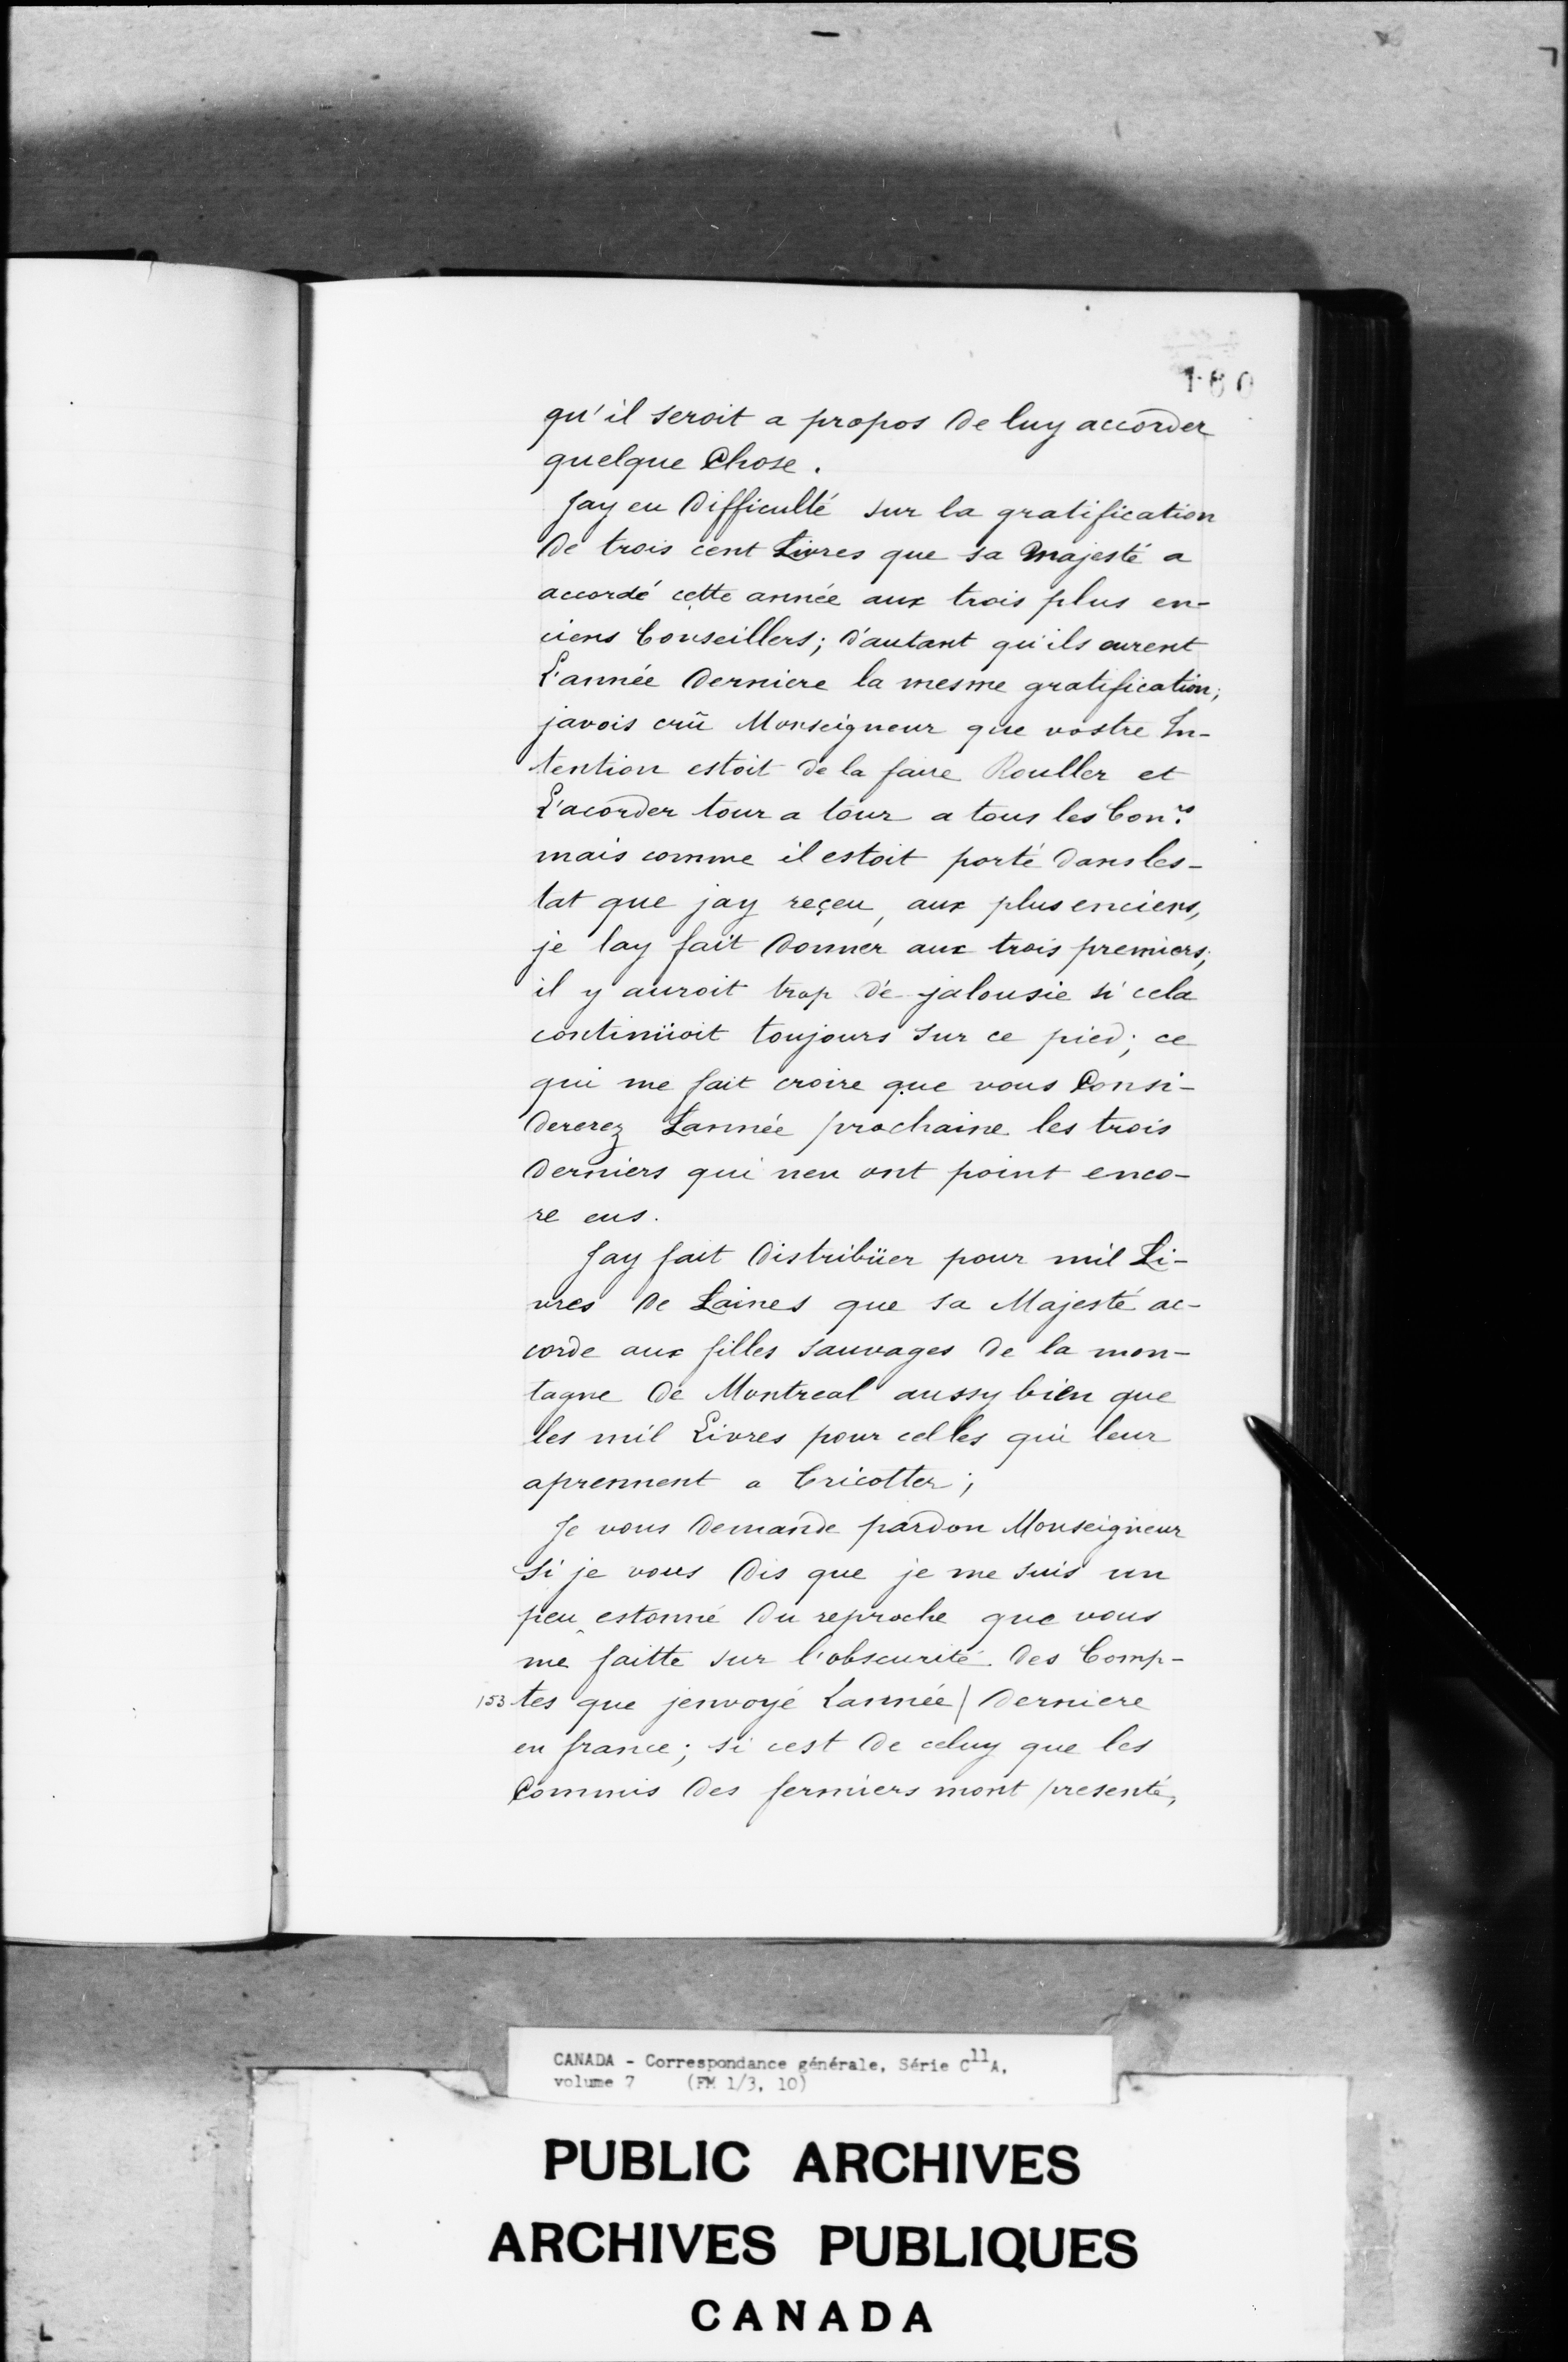 180
qu'il seroit a propos de luy accorder
quelque Chose.
Jay eu difficulté sur la gratification
de trois cent Livres que sa Majesté a
accordé cette année aux trois plus en-
ciens Conseillers; d'autant qu'ils eurent
L'année derniere la mesme gratification;
javois crû Monseigneur que vostre In-
tention estoit de la faire Rouller et
L'acorder tour a tour a tous les Con.rs
mais comme il estoit porté dans les-
tat que jay reçeu, aux plus enciens,
je lay fait donner aux trois premiers;
il y auroit trop de jalousie si cela
continüoit toujours sur ce pied; ce
qui me fait croire que vous Consi-
dererez Lannée prochaine les trois
derniers qui nen ont point enco-
re eus.
Jay fait distribüer pour mil Li-
vres de Laines que sa Majesté ac-
corde aux filles sauvages de la mon-
tagne de Montreal aussy bien que
les mil Livres pour celles qui leur
aprennent a tricotter;
Je vous demande pardon Monseigneur
si je vous dis que je me suis un
peu estonné du reproche que vous
me faitte sur l'obscurité des Comp-
153 tes que jenvoyé Lannée | derniere
en france; si cest de celuy que les
Commis des fermiers mont presenté,
CANADA - Correspondance générale, Série C11A,
volume 7 (FM 1/3, 10)
PUBLIC ARCHIVES
ARCHIVES PUBLIQUES
CANADA